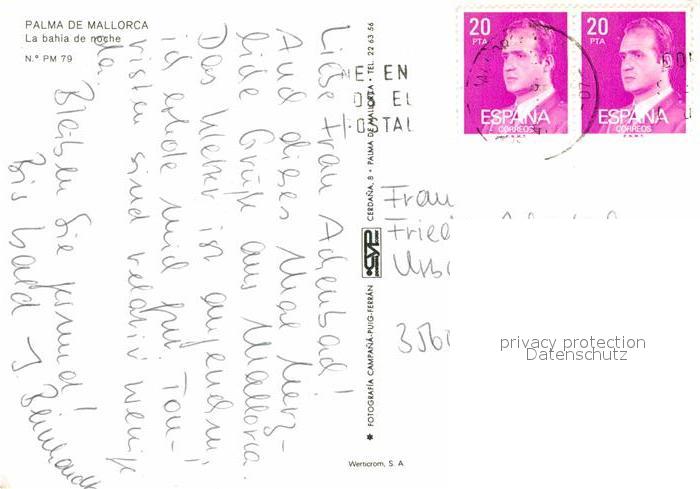 PALMA DE MALLORCA
La bahia de noche
N.º PM 79
Liebe Frau Achenbad!
Auch dieses Mal herz-
liche Grüße aus Mallorca.
Das Wetter ist angenehm,
ich erhole mich gut. Tou-
risten sind relativ wenig
da.
Bleiben Sie gesund!
Bis bald
FOTOGRAFÍA CAMPAÑÁ-PUIG-FERRÁN
CERDAÑA, 8 • PALMA DE MALLORCA • TEL. 22 63 56
Werticrom, S. A.
20
PTA
ESPAÑA
CORREOS
20
PTA
ESPAÑA
CORREOS
E EN
EL
OSTAL
Frau
Fried
privacy protection
Datenschutz